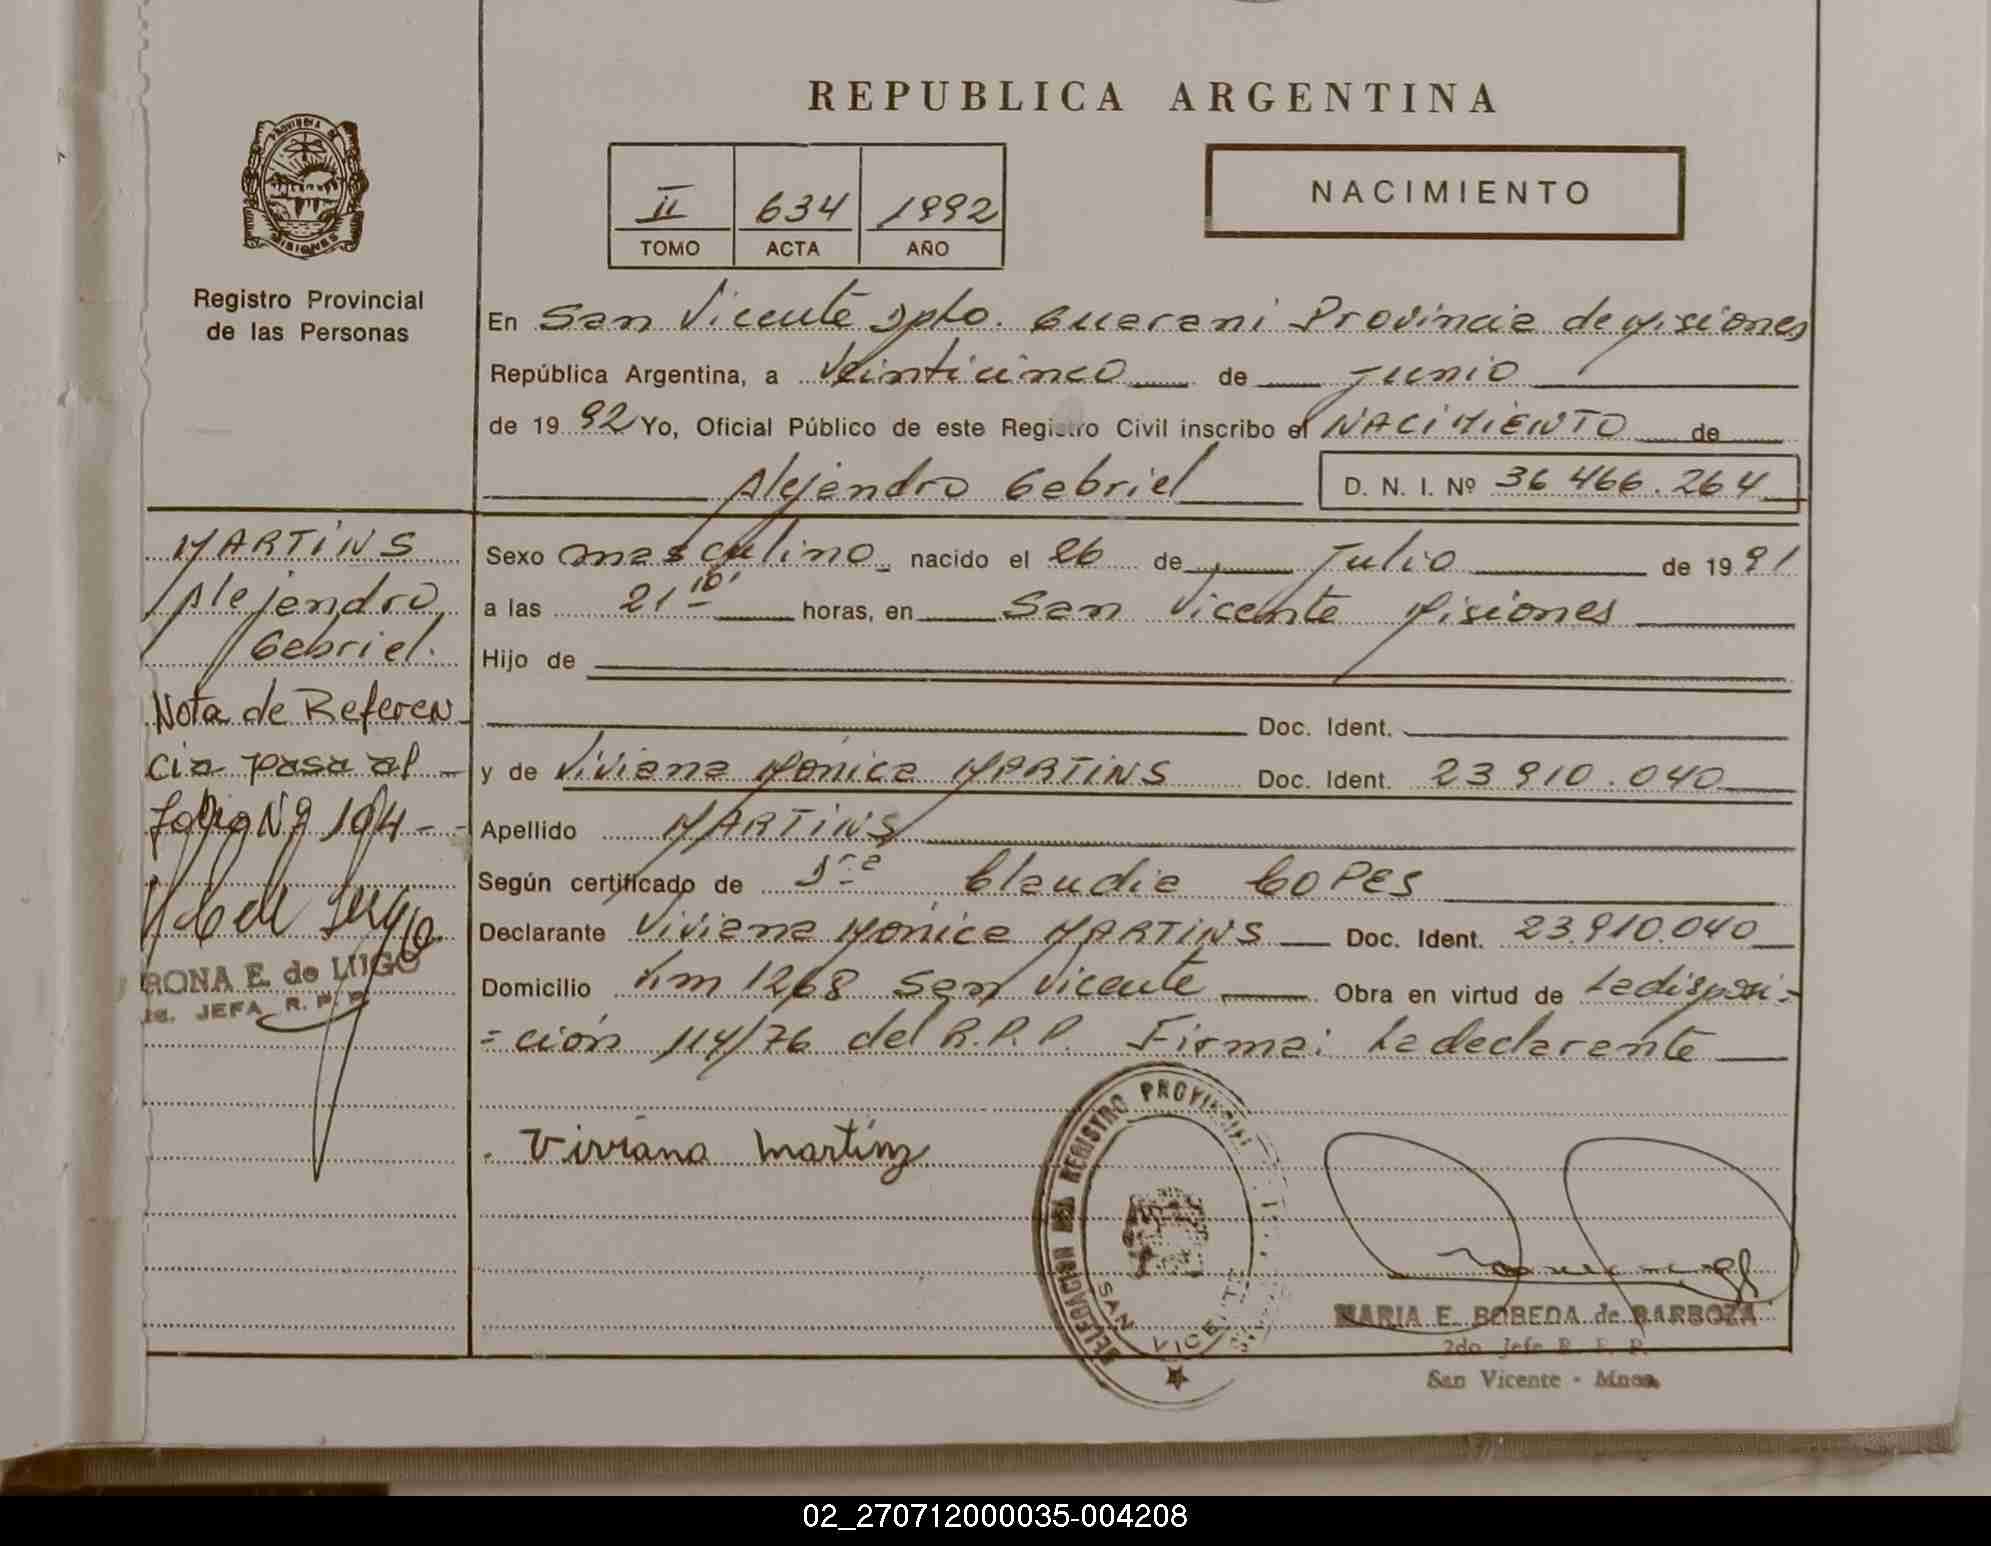 REPUBLICA ARGENTINA
PROVINCIA DE
MISIONES
Registro Provincial
de las Personas
II 634 1992
TOMO ACTA AÑO
NACIMIENTO
En San Vicente Dpto. Guarani Provincia de Misiones
República Argentina, a Veinticinco de Junio
de 19 92 Yo, Oficial Público de este Registro Civil inscribo el NACIMIENTO de
Alejandro Gabriel D. N. I. Nº 36 466.264
MARTINS
Alejandro
Gabriel.
Nota de Referen
cia pasa al
folio Nº 194
RONA E. de LUGO
JEFA R. P. P.
Sexo masculino nacido el 26 de Julio de 19 91
a las 21 10' horas, en San Vicente Misiones
Hijo de
Doc. Ident.
y de Viviana Mónica MARTINS Doc. Ident. 23 910.040
Apellido MARTINS
Según certificado de Dra Claudia COPES
Declarante Viviana Mónica MARTINS Doc. Ident. 23.910.040
Domicilio Km 1268 San Vicente Obra en virtud de La disposi-
=ción 114/76 del R.P.P. Firma: La declarante
Viviana Martinz
DELEGACION DEL REGISTRO PROVINCIAL
SAN VICENTE
MARIA E. BOBEDA de BARBOZA
2do Jefe R. P. P.
San Vicente - Mnes.
02_270712000035-004208